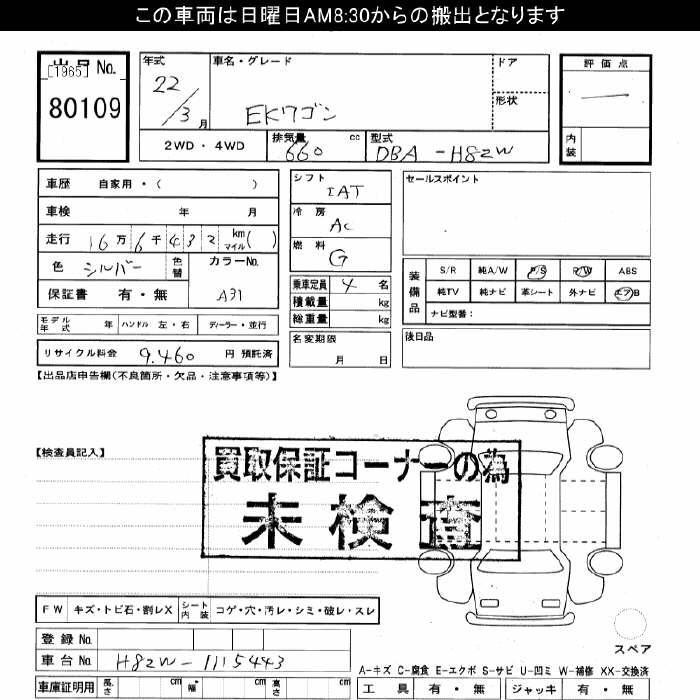 この車両は日曜日AM8:30からの搬出となります
出品 No.
[1965]
80109
年式 22/3 月
車名・グレード EKワゴン
ドア
形状
評価点 —
内装
2WD・4WD
排気量 660 cc
型式 DBA-H82W
車歴 自家用・( )
車検 年 月
走行 16万6千432 km マイル( )
色 シルバー 色替
カラーNo. A31
保証書 有・無
シフト IAT
冷房 AC
燃料 G
乗車定員 4 名
積載量 kg
総重量 kg
セールスポイント
装備品
S/R 純A/W P/S P/W ABS
純TV 純ナビ 革シート 外ナビ エアB
ナビ型番:
モデル年式 年 ハンドル 左・右 ディーラー・並行
名変期限 月 日
後日品
リサイクル料金 9,460 円 預託済
【出品店申告欄(不良箇所・欠品・注意事項等)】
【検査員記入】
買取保証コーナーの為
未検査
FW キズ・トビ石・割レX シート内装 コゲ・穴・汚レ・シミ・破レ・スレ
スペア
登録No.
車台No. H82W-1115443
A-キズ C-腐食 E-エクボ S-サビ U-凹ミ W-補修 XX-交換済
車庫証明用 長さ cm 幅 cm 高さ cm
工具 有・無 ジャッキ 有・無